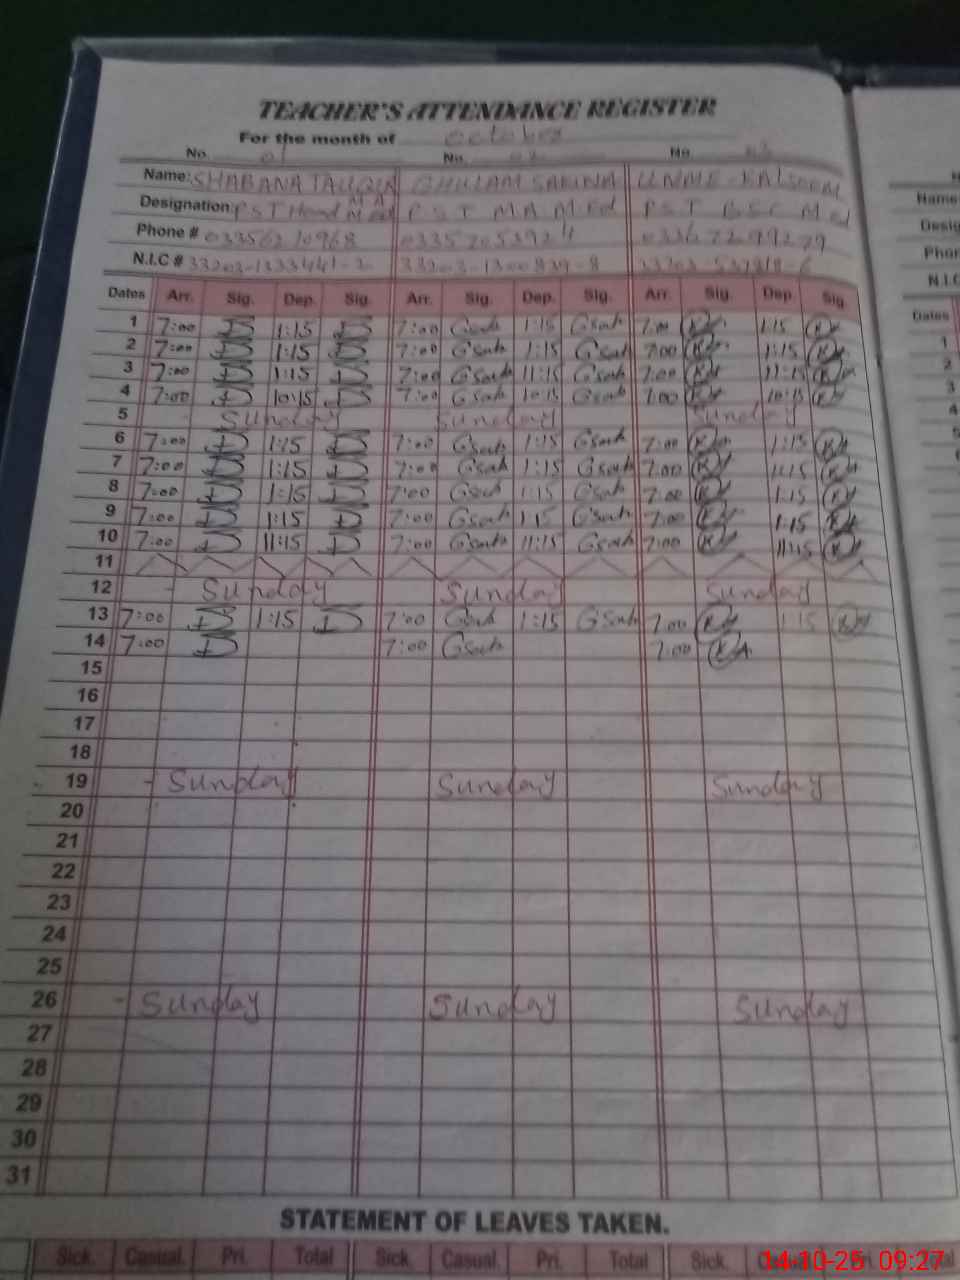 TEACHER'S ATTENDANCE REGISTER
For the month of October
No. 01 No. 02 No. 03
Name: SHABANA TAUQIR GHULAM SAKINA UMME-KALSOOM
Designation: P.S.T Head M.A M.Ed P.S.T M.A M.Ed P.S.T B.SC M.Ed
Phone # 03356210968 03367299279
N.I.C #
Dates Arr. Sig. Dep. Sig. Arr. Sig. Dep. Sig. Arr. Sig. Dep. Sig.
1 7:00 1:15 7:00 Gsak 1:15 Gsak 7:00 1:15
2 7:00 1:15 7:00 Gsak 1:15 Gsak 7:00 1:15
3 7:00 1:15 7:00 Gsak 11:15 Gsak 7:00 11:15
4 7:00 10:15 7:00 Gsak 10:15 Gsak 7:00 10:15
5 - Sunday Sunday Sunday
6 7:00 1:15 7:00 Gsak 1:15 Gsak 7:00 1:15
7 7:00 1:15 7:00 Gsak 1:15 Gsak 7:00 1:15
8 7:00 1:15 7:00 Gsak 1:15 Gsak 7:00 1:15
9 7:00 1:15 7:00 Gsak 1:15 Gsak 7:00 1:15
10 7:00 11:15 7:00 Gsak 11:15 Gsak 7:00 11:15
11
12 - Sunday Sunday Sunday
13 7:00 1:15 7:00 Gsak 1:15 Gsak 7:00 1:15
14 7:00 7:00 Gsak 7:00
15
16
17
18
19 - Sunday Sunday Sunday
20
21
22
23
24
25
26 - Sunday Sunday Sunday
27
28
29
30
31
STATEMENT OF LEAVES TAKEN.
Sick. Casual. Pri. Total Sick. Casual. Pri. Total Sick.
14-10-25 09:27
Name
Desig
Phon
N.I.C
Dates
1
2
3
4